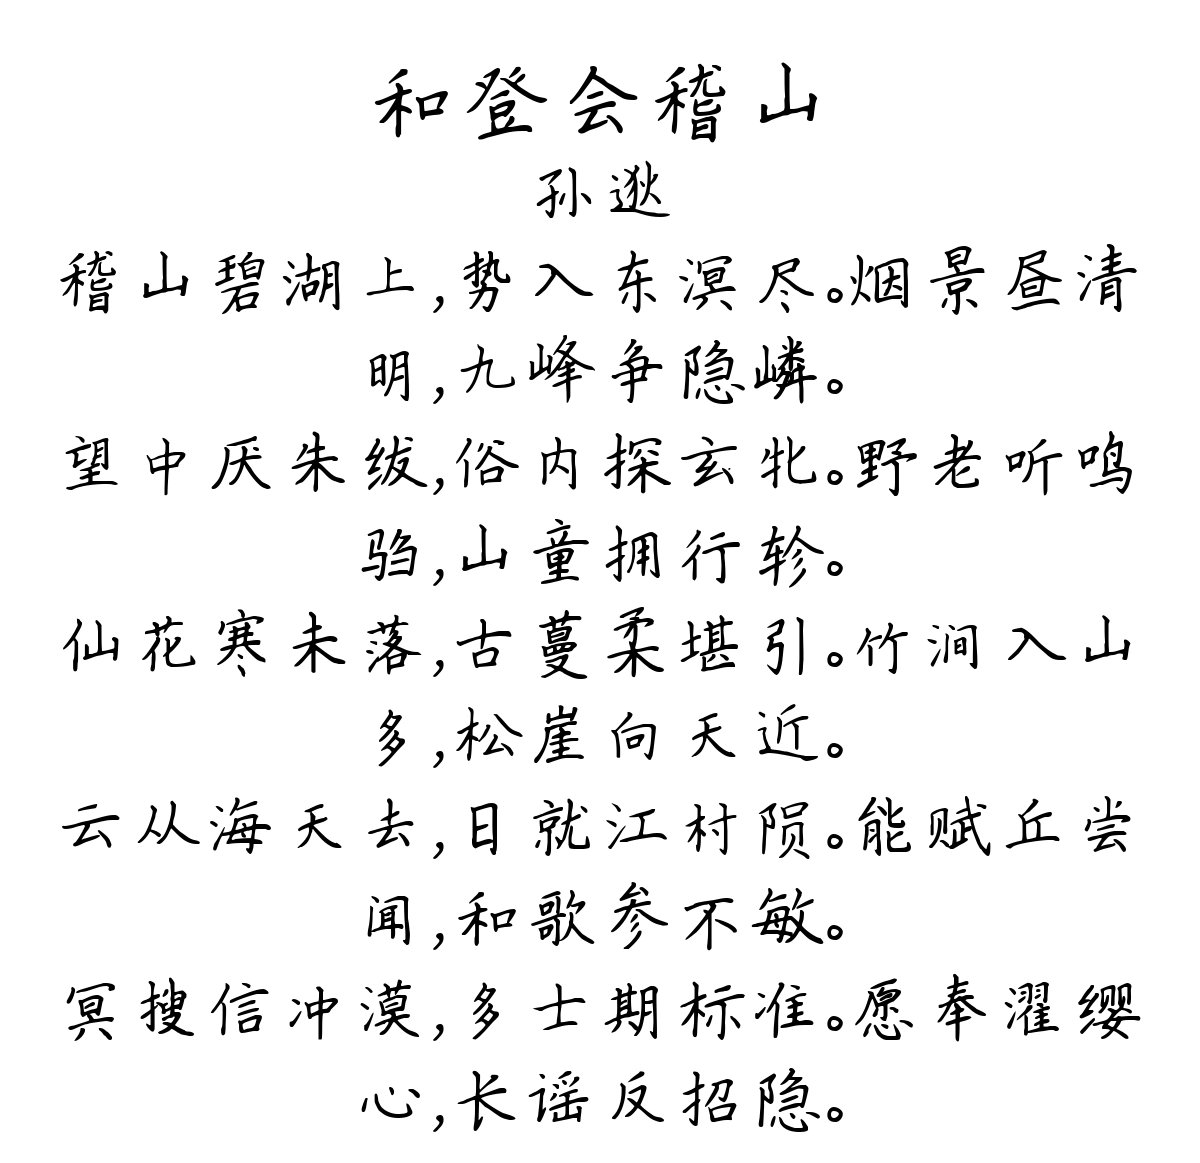 和登会稽山
孙逖
稽山碧湖上,势入东溟尽。烟景昼清
明,九峰争隐嶙。
望中厌朱绂,俗内探玄牝。野老听鸣
驺,山童拥行轸。
仙花寒未落,古蔓柔堪引。竹涧入山
多,松崖向天近。
云从海天去,日就江村陨。能赋丘尝
闻,和歌参不敏。
冥搜信冲漠,多士期标准。愿奉濯缨
心,长谣反招隐。